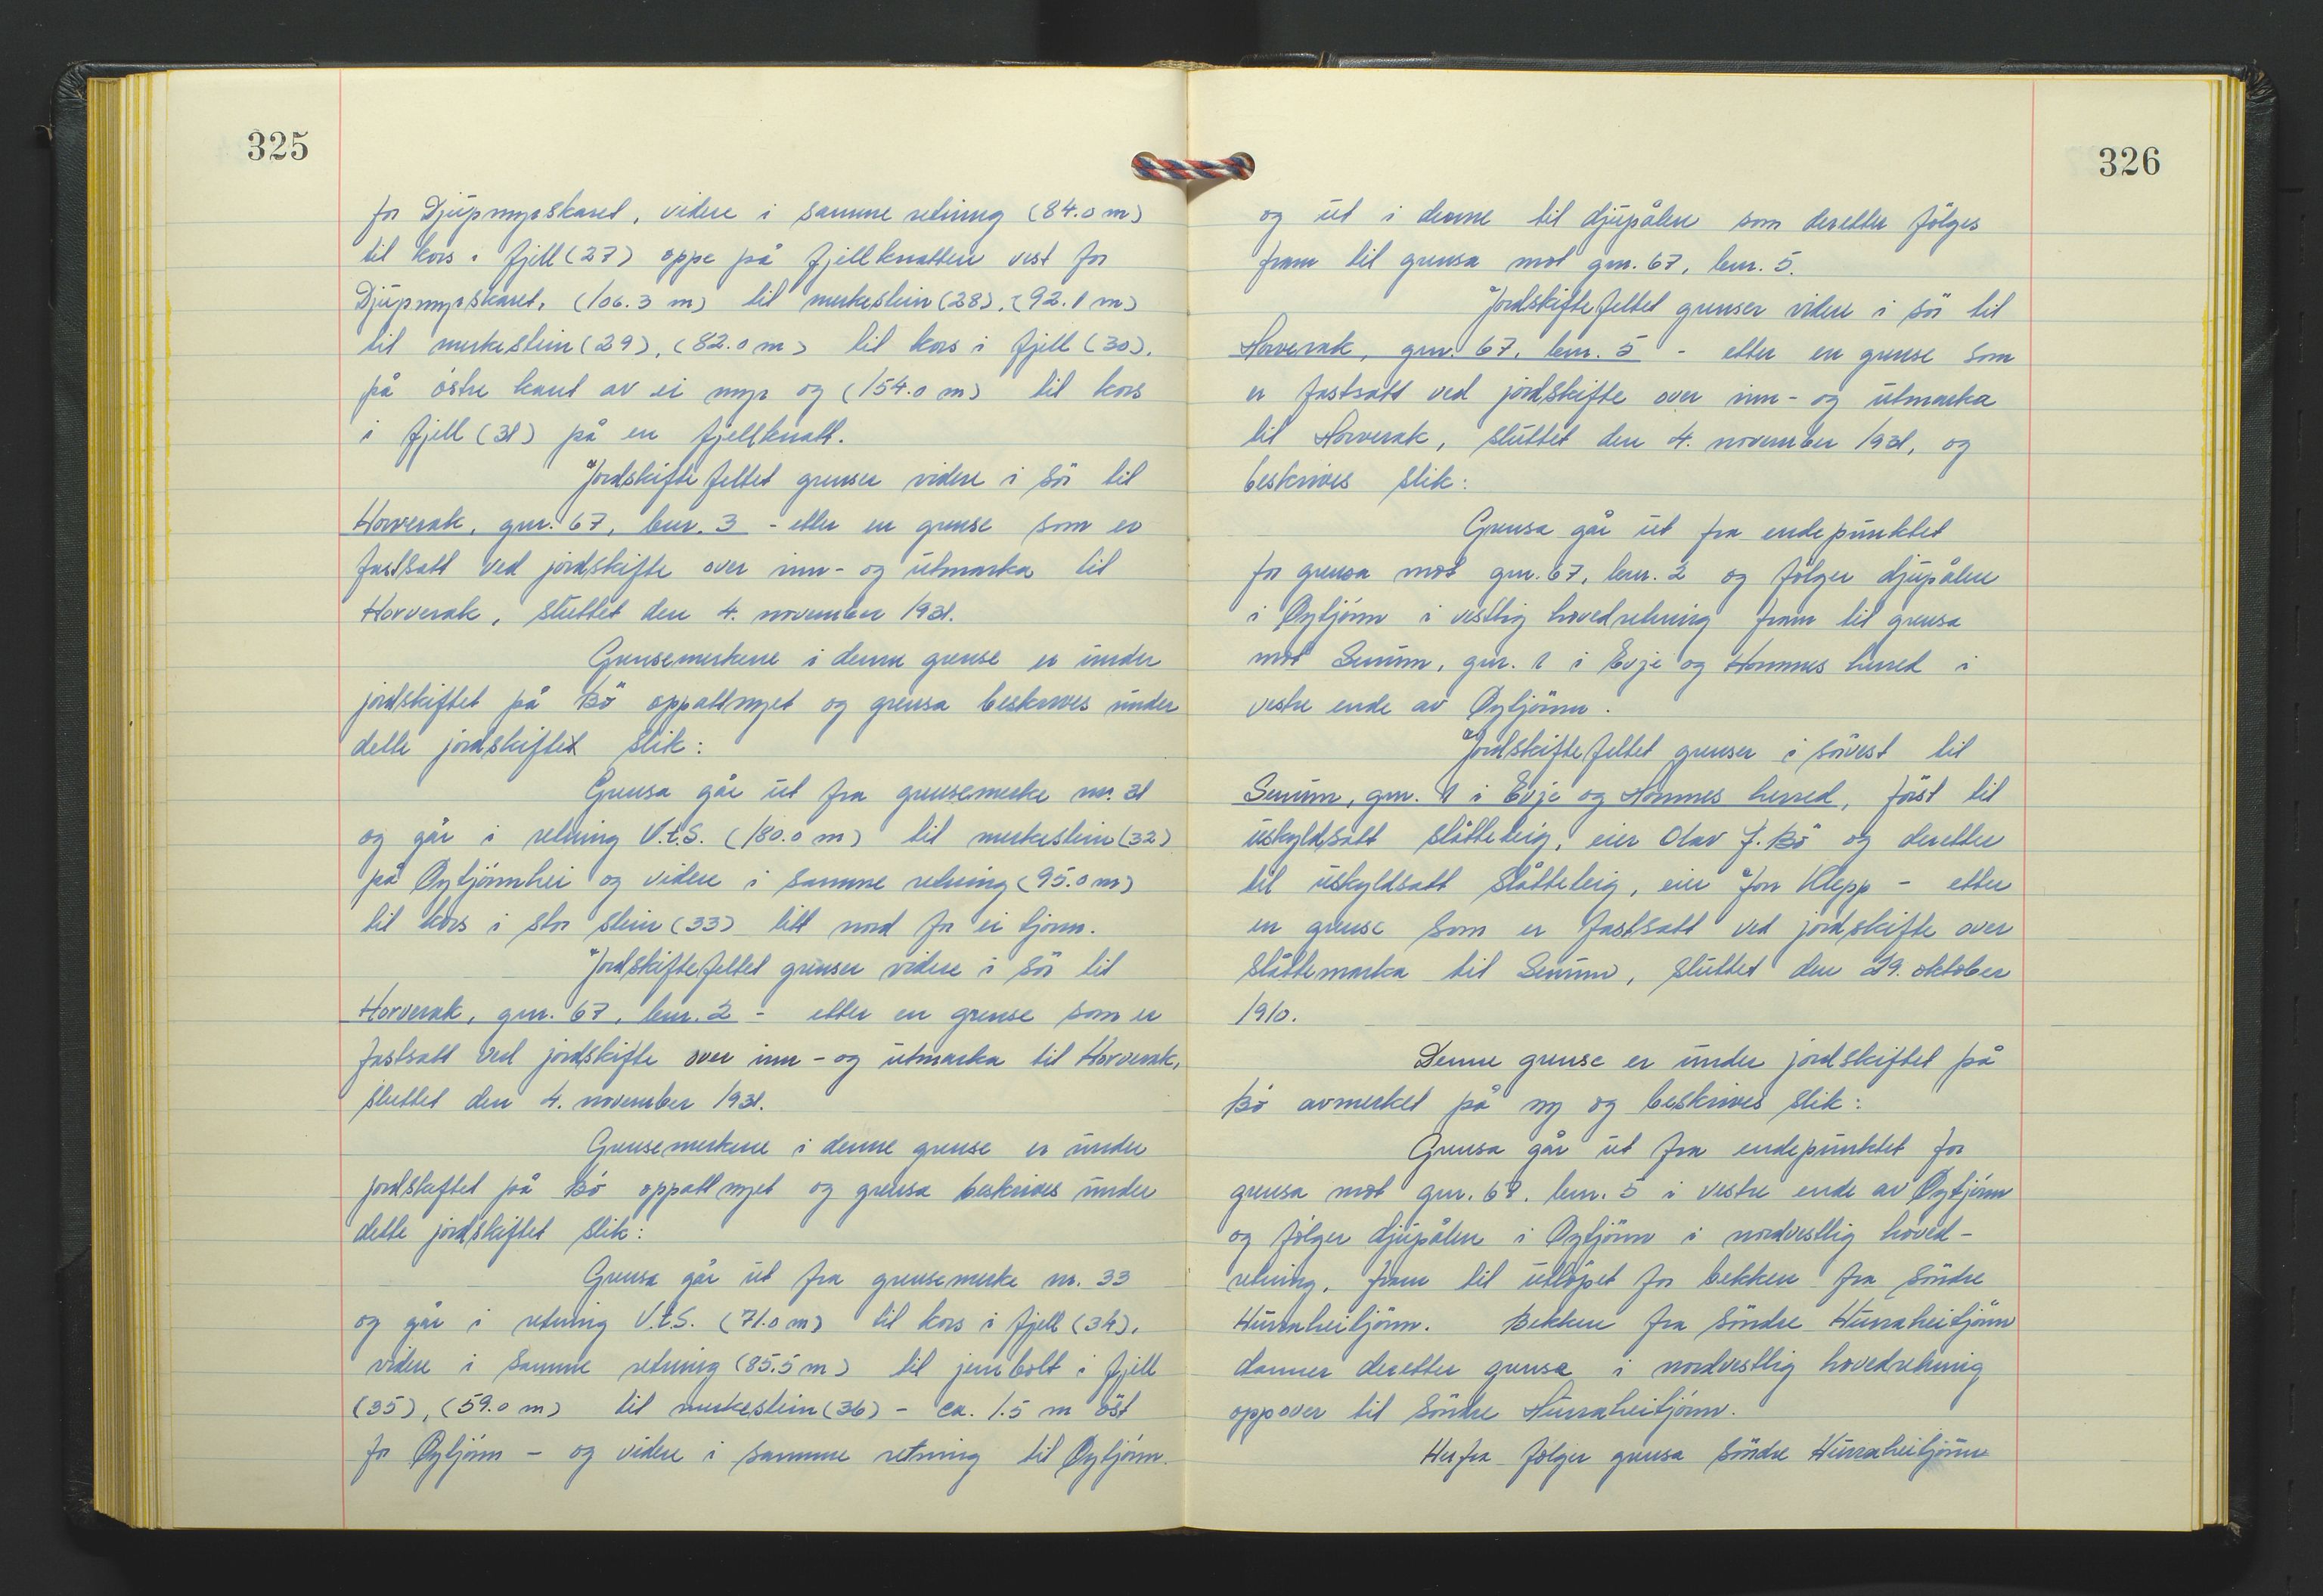 325
for Djupmyrskaret, videre i samme retning (84.0 m)
til kors i fjell (27) oppe på fjellknatten vest for
Djupmyrskaret, (106.3 m) til merkestein (28), (92.1 m)
til merkestein (29), (82.0 m) til kors i fjell (30),
på östre kant av ei myr og (154.0 m) til kors
i fjell (31) på en fjellknatt.
Jordskiftefeltet grenser videre i sör til
Horverak, gnr. 67, bnr. 3 - etter en grense som er
fastsatt ved jordskifte over inn- og utmarka til
Horverak, sluttet den 4. november 1931.
Grensemerkene i denne grense er under
jordskiftet på Bö oppattnyet og grensa beskrives under
dette jordskiftet slik:
Grensa går ut fra grensemerke nr. 31
og går i retning V.t.S. (180.0 m) til merkestein (32)
på Øytjönnhei og videre i samme retning (95.0 m)
til kors i stor stein (33) litt nord for ei tjönn.
Jordskiftefeltet grenser videre i sör til
Horverak, gnr. 67, bnr. 2 - etter en grense som er
fastsatt ved jordskifte over inn- og utmarka til Horverak,
sluttet den 4. november 1931.
Grensemerkene i denne grense er under
jordskiftet på Bö oppattnyet og grensa beskrives under
dette jordskiftet slik:
Grensa går ut fra grensemerke nr. 33
og går i retning V.t.S. (71.0 m) til kors i fjell (34),
videre i samme retning (85.5 m) til jernbolt i fjell
(35), (59.0 m) til merkestein (36) - ca. 1.5 m öst
for Øytjönn - og videre i samme retning til Øytjönn
326
og ut i denne til djupålen som deretter fölges
fram til grensa mot gnr. 67, bnr. 5.
Jordskiftefeltet grenser videre i sör til
Horverak, gnr. 67, bnr. 5 - etter en grense som
er fastsatt ved jordskifte over inn- og utmarka
til Horverak, sluttet den 4. november 1931, og
beskrives slik:
Grensa går ut fra endepunktet
for grensa mot gnr. 67, bnr. 2 og fölger djupålen
i Øytjönn i vestlig hovedretning fram til grensa
mot Senum, gnr. 1 i Evje og Hornnes herred i
vestre ende av Øytjönn.
Jordskiftefeltet grenser i sörvest til
Senum, gnr. 1 i Evje og Hornnes herred, först til
uskyldsatt slåtteteig, eier Olav J. Bö og deretter
til uskyldsatt slåtteteig, eier Jon Klepp - etter
en grense som er fastsatt ved jordskifte over
slåttemarka til Senum, sluttet den 29. oktober
1910.
Denne grense er under jordskiftet på
Bö avmerket på ny og beskrives slik:
Grensa går ut fra endepunktet for
grensa mot gnr. 67, bnr. 5 i vestre ende av Øytjönn
og fölger djupålen i Øytjönn i nordvestlig hoved-
retning, fram til utlöpet for bekken fra söndre
Hurraheitjönn. Bekken fra söndre Hurraheitjönn
danner deretter grensa i nordvestlig hovedretning
oppover til söndre Hurraheitjönn.
Herfra fölger grensa söndre Hurraheitjönn